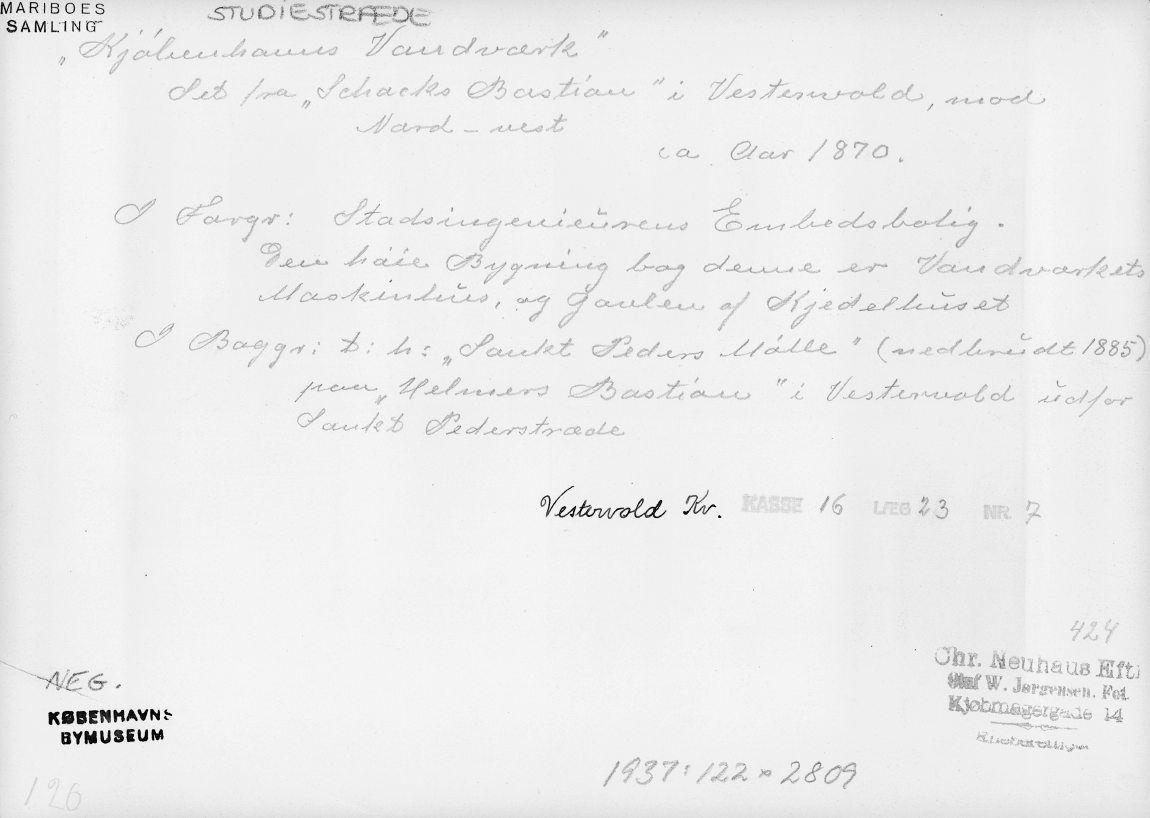 MARIBOES
SAMLING
STUDIESTRÆDE
„Kjöbenhavns Vandværk"
Set fra „Schacks Bastion" i Vestervold, mod
Nord-vest
ca Aar 1870.
I Forgr: Stadsingenieurens Embedsbolig.
Den höie Bygning bag denne er Vandværkets
Maskinhus, og Gavlen af Kjedelhuset
I Baggr: t: h: „Sankt Peders Mölle" (nedbrudt 1885)
paa „Helmers Bastion" i Vestervold udfor
Sankt Pederstræde
Vestervold Kv. KASSE 16 LÆG 23 NR. 7
424
Chr. Neuhaus Eftf
Oluf W. Jørgensen. Fot.
Kjøbmagergade 14
NEG.
KØBENHAVNS
BYMUSEUM
1937:122 × 2809
126